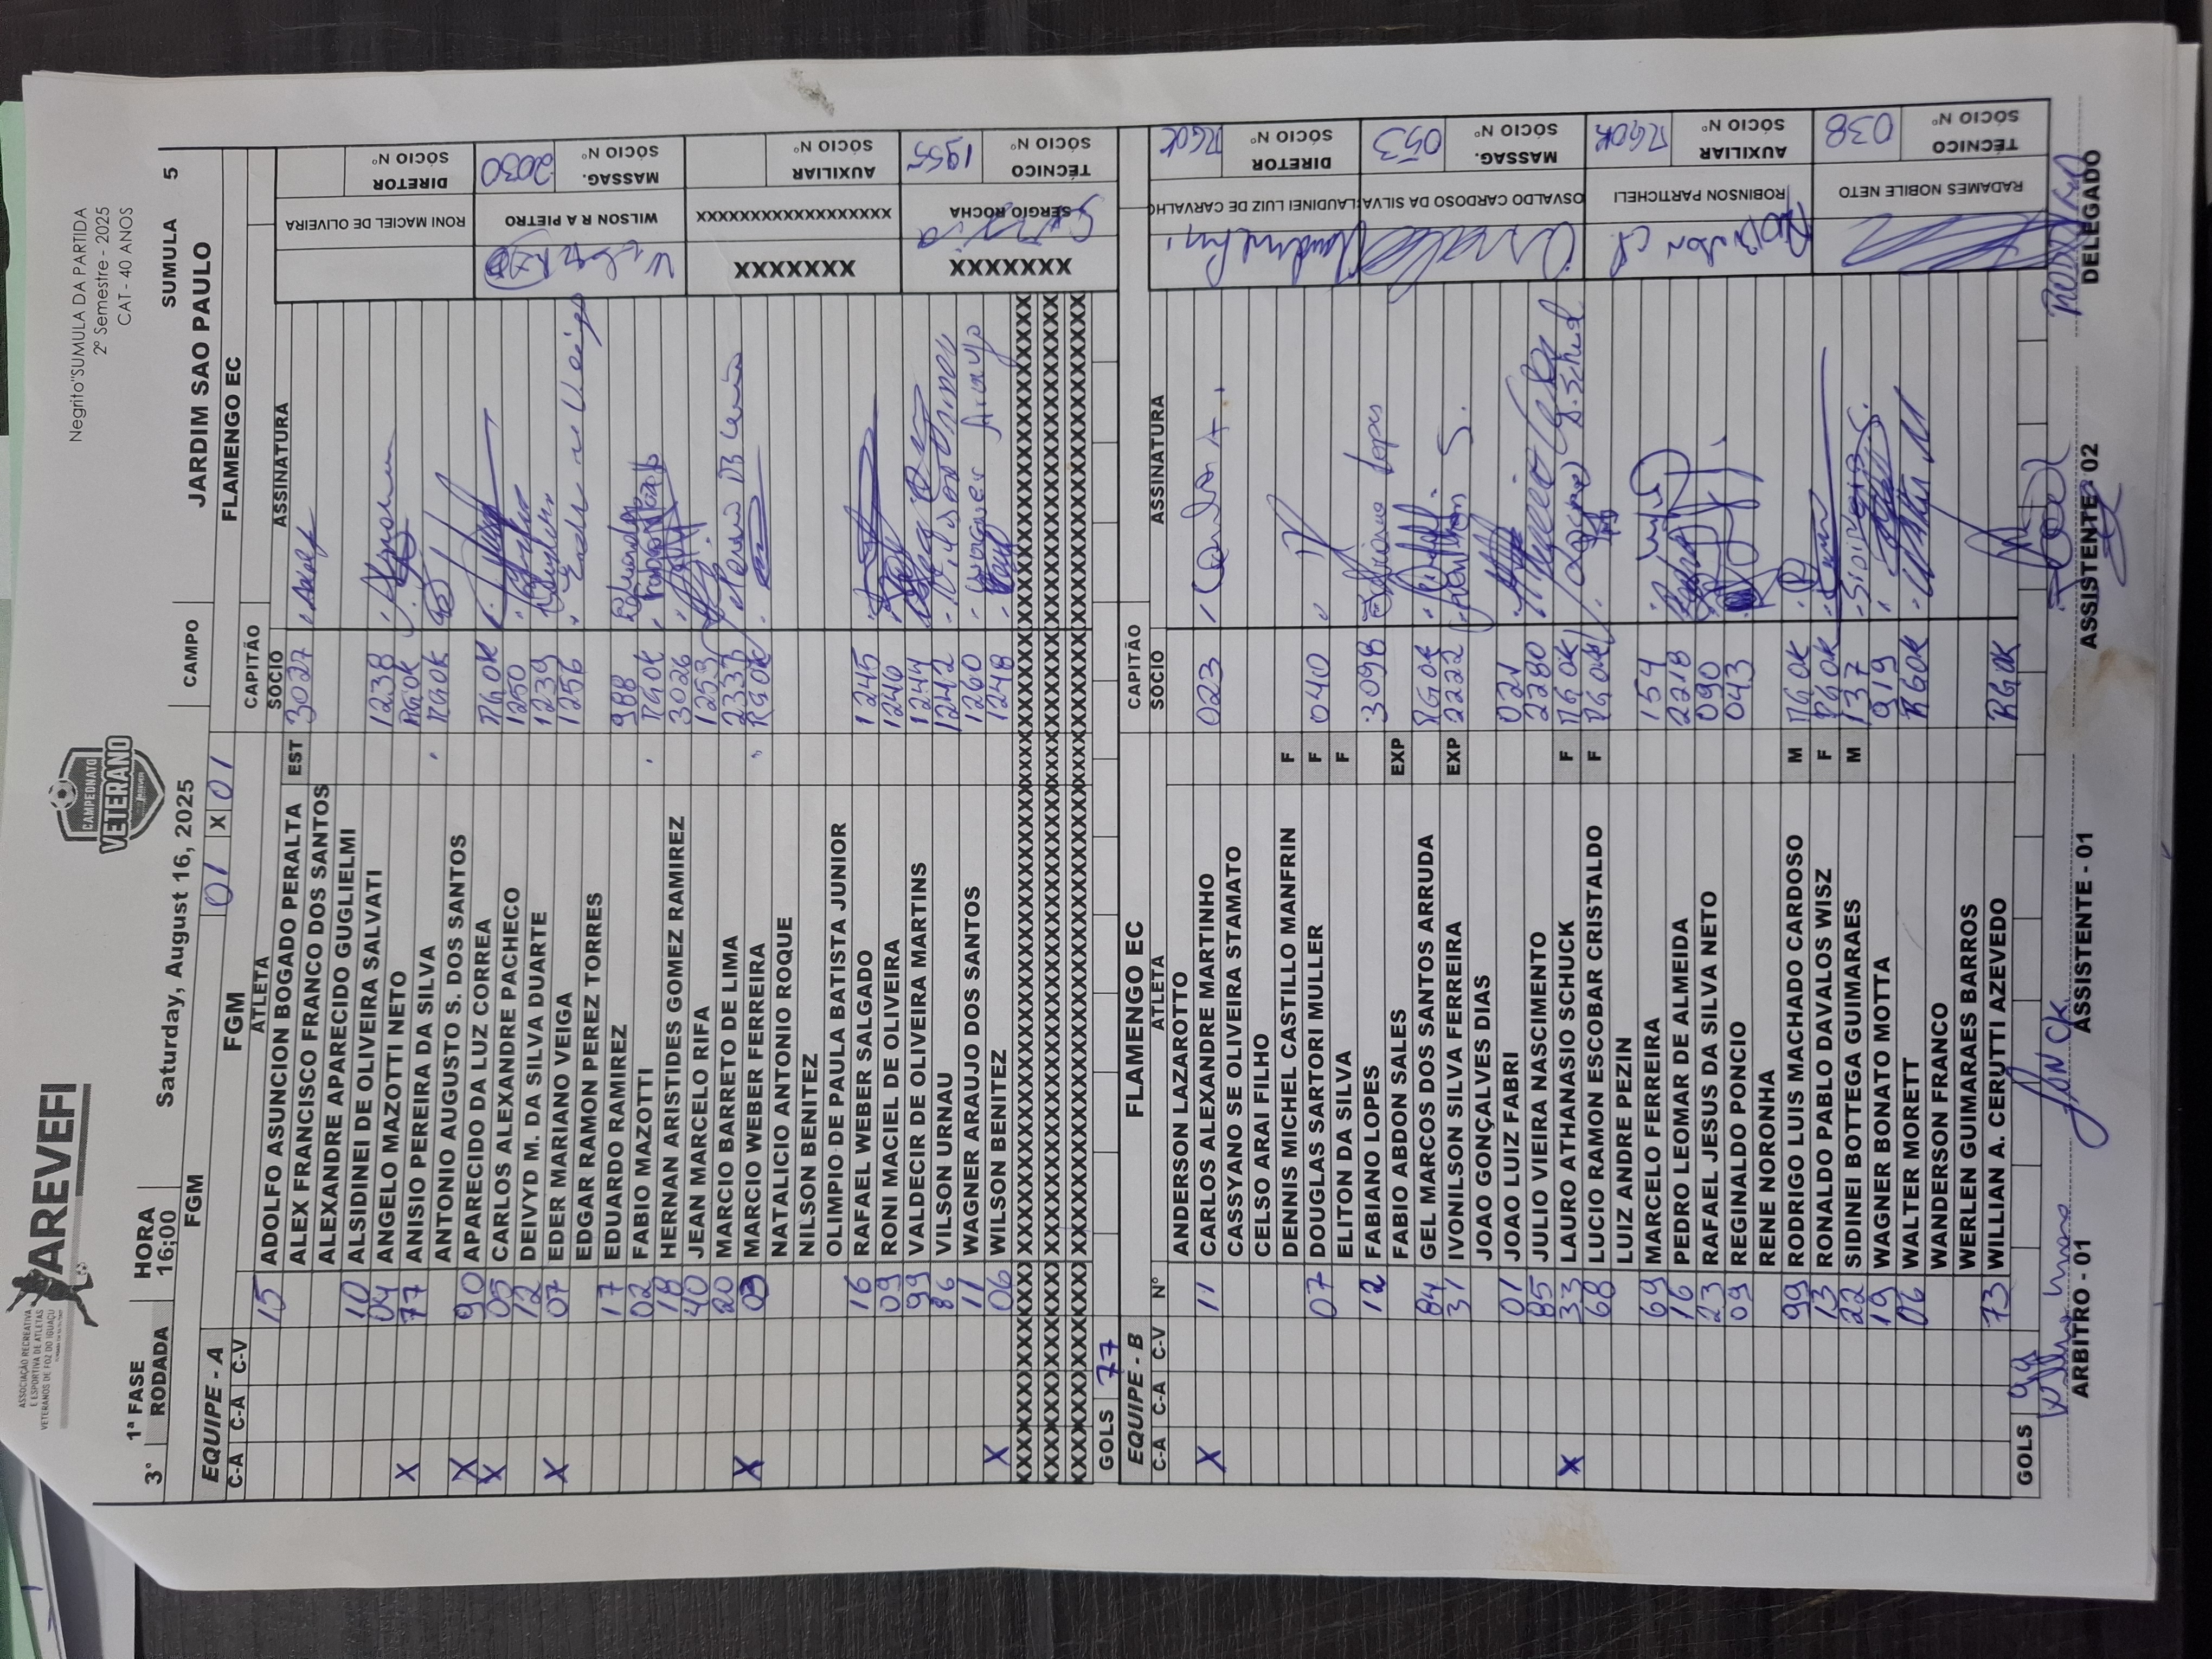 AREVEFI
ASSOCIAÇÃO RECREATIVA
E ESPORTIVA DE ATLETAS
VETERANOS DE FOZ DO IGUAÇU
CAMPEONATO
VETERANO
Negrito"SUMULA DA PARTIDA
2º Semestre - 2025
CAT - 40 ANOS
3ª 1ª FASE HORA Saturday, August 16, 2025 CAMPO SUMULA 5
RODADA 16;00 JARDIM SAO PAULO
FGM 01 X 01 FLAMENGO EC
EQUIPE - A FGM CAPITÃO
C-A C-A C-V ATLETA SOCIO ASSINATURA
15 ADOLFO ASUNCION BOGADO PERALTA EST 3027
ALEX FRANCISCO FRANCO DOS SANTOS
ALEXANDRE APARECIDO GUGLIELMI
10 ALSIDINEI DE OLIVEIRA SALVATI 1238
04 ANGELO MAZOTTI NETO RGOK
X 77 ANISIO PEREIRA DA SILVA RGOK
ANTONIO AUGUSTO S. DOS SANTOS
X 90 APARECIDO DA LUZ CORREA RGOK
X 05 CARLOS ALEXANDRE PACHECO 1250
12 DEIVYD M. DA SILVA DUARTE 1239
X 07 EDER MARIANO VEIGA 1256
EDGAR RAMON PEREZ TORRES
17 EDUARDO RAMIREZ 988
02 FABIO MAZOTTI RGOK
18 HERNAN ARISTIDES GOMEZ RAMIREZ 3026
40 JEAN MARCELO RIFA 1253
20 MARCIO BARRETO DE LIMA 2337
X 03 MARCIO WEBER FERREIRA RGOK
NATALICIO ANTONIO ROQUE
NILSON BENITEZ
OLIMPIO DE PAULA BATISTA JUNIOR
16 RAFAEL WEBER SALGADO 1245
09 RONI MACIEL DE OLIVEIRA 1246
99 VALDECIR DE OLIVEIRA MARTINS 1244
86 VILSON URNAU 1242
11 WAGNER ARAUJO DOS SANTOS 1260
X 06 WILSON BENITEZ 1248
GOLS 77
RONI MACIEL DE OLIVEIRA DIRETOR SÓCIO Nº
WILSON R A PIETRO 2030 MASSAG. SÓCIO Nº
XXXXXXX XXXXXXXXXXXXXXXXXXX AUXILIAR SÓCIO Nº
XXXXXXX SERGIO ROCHA 1955 TÉCNICO SÓCIO Nº
EQUIPE - B FLAMENGO EC CAPITÃO
C-A C-A C-V Nº ATLETA SOCIO ASSINATURA
ANDERSON LAZAROTTO
X 11 CARLOS ALEXANDRE MARTINHO 023
CASSYANO SE OLIVEIRA STAMATO
CELSO ARAI FILHO
DENNIS MICHEL CASTILLO MANFRIN F
07 DOUGLAS SARTORI MULLER F 040
ELITON DA SILVA F
12 FABIANO LOPES 3098 Fabiano Lopes
FABIO ABDON SALES EXP
84 GEL MARCOS DOS SANTOS ARRUDA RGOK
31 IVONILSON SILVA FERREIRA EXP 2222
JOAO GONÇALVES DIAS
01 JOAO LUIZ FABRI 021
85 JULIO VIEIRA NASCIMENTO 2280
X 33 LAURO ATHANASIO SCHUCK F RGOK
68 LUCIO RAMON ESCOBAR CRISTALDO F RGOK
LUIZ ANDRE PEZIN
69 MARCELO FERREIRA 154
16 PEDRO LEOMAR DE ALMEIDA 2218
23 RAFAEL JESUS DA SILVA NETO 090
09 REGINALDO PONCIO 043
RENE NORONHA
99 RODRIGO LUIS MACHADO CARDOSO M RGOK
13 RONALDO PABLO DAVALOS WISZ F RGOK
22 SIDINEI BOTTEGA GUIMARAES M 137
19 WAGNER BONATO MOTTA 919
06 WALTER MORETT RGOK
WANDERSON FRANCO
WERLEN GUIMARAES BARROS
73 WILLIAN A. CERUTTI AZEVEDO RGOK
GOLS 99
CLAUDINEI LUIZ DE CARVALHO RGOK DIRETOR SÓCIO Nº
OSVALDO CARDOSO DA SILVA 053 MASSAG. SÓCIO Nº
ROBINSON PARTICHELI RGOK AUXILIAR SÓCIO Nº
RADAMES NOBILE NETO 038 TÉCNICO SÓCIO Nº
ARBITRO - 01 ASSISTENTE - 01 ASSISTENTE - 02 DELEGADO